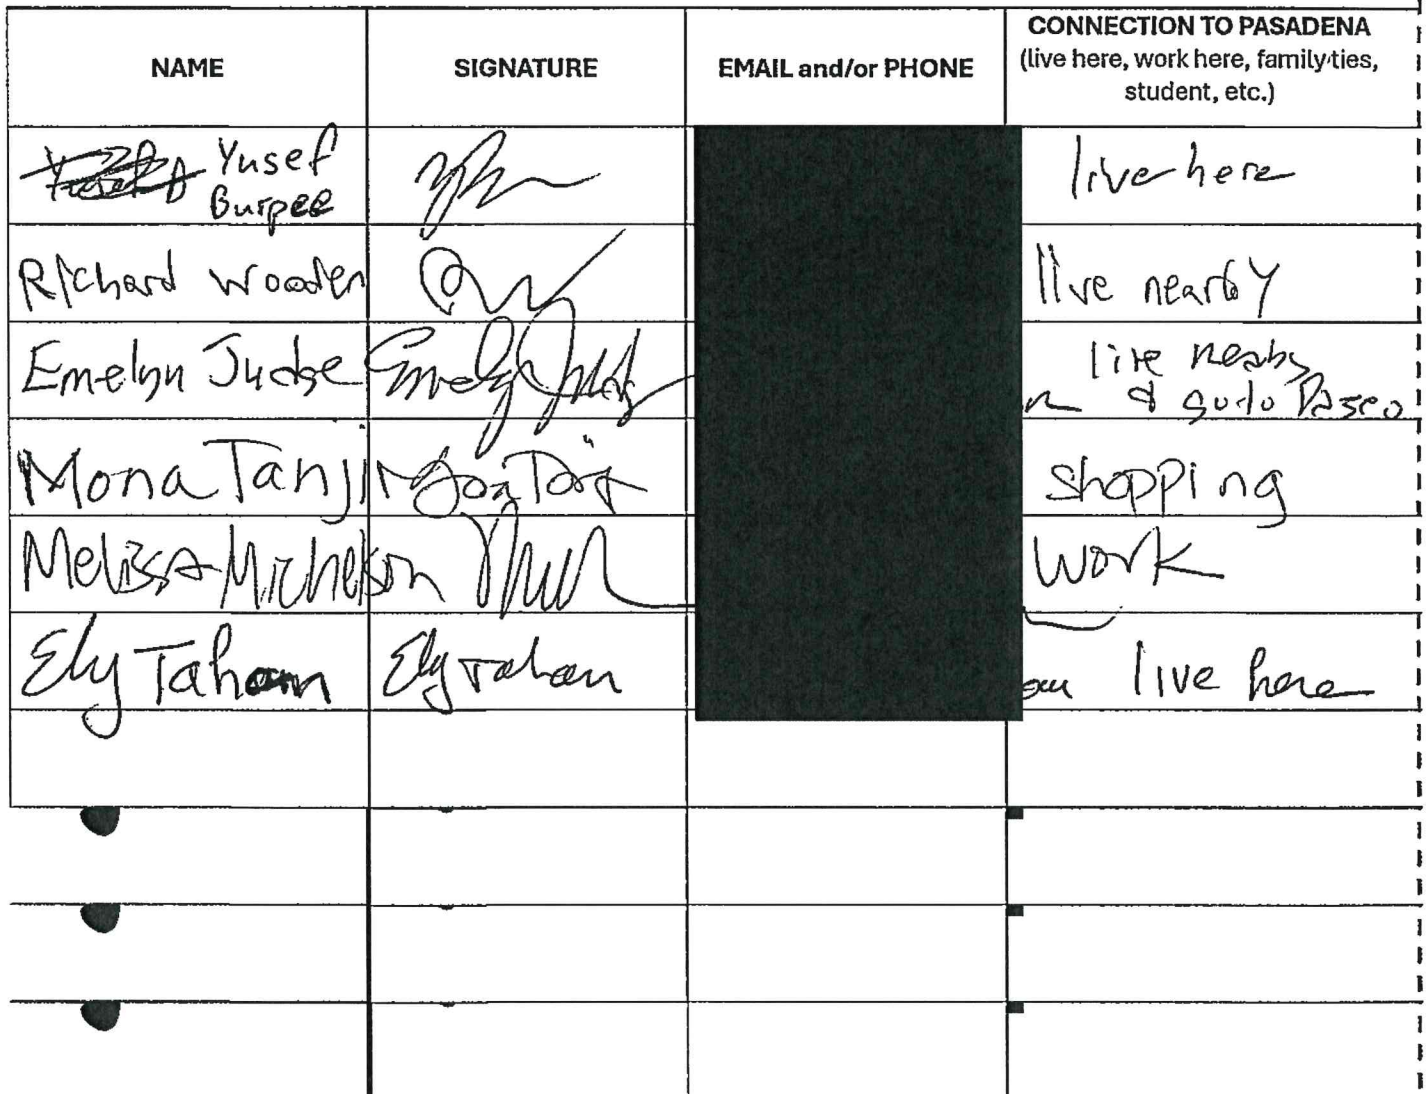 NAME SIGNATURE EMAIL and/or PHONE CONNECTION TO PASADENA
(live here, work here, family ties,
student, etc.)
Yusef
Burpee live here
Richard Wooden live nearby
Emelyn Judge Emely Judge live nearby
& go to Paseo
Mona Tanji shopping
Melissa Michelson work
Ely Taham Ely Tahan live here